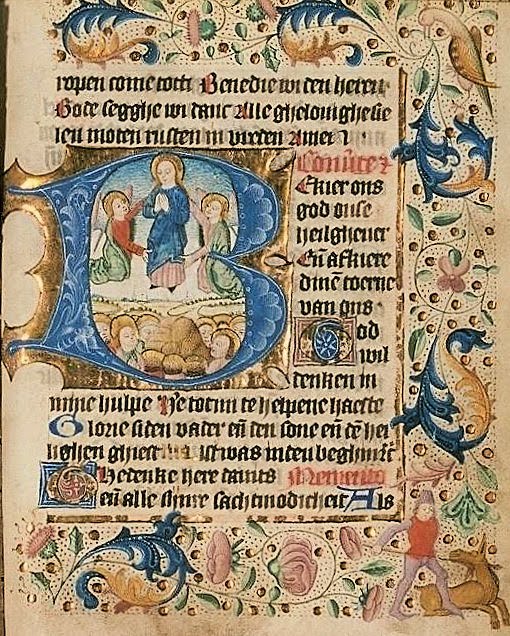 ropen come tott Benedien wi den heren
Gode segghe wi danc Alle ghelouighe sie
len moten rusten in vreden Amen
Conu̅te
B Ekier ons
god onse
heilgheuer
En̅ afkiere
dine̅ toerne
van ons
God
wil
denken in
mine hulpe He̅ te mi te helpene haeste
Glorie si den vader en̅ den sone en̅ de̅ hei
lighen gheest Alst was in den beghin̅e
Ghedenke here dauits Memento
en̅ alle sijnre sachtmodicheit Als